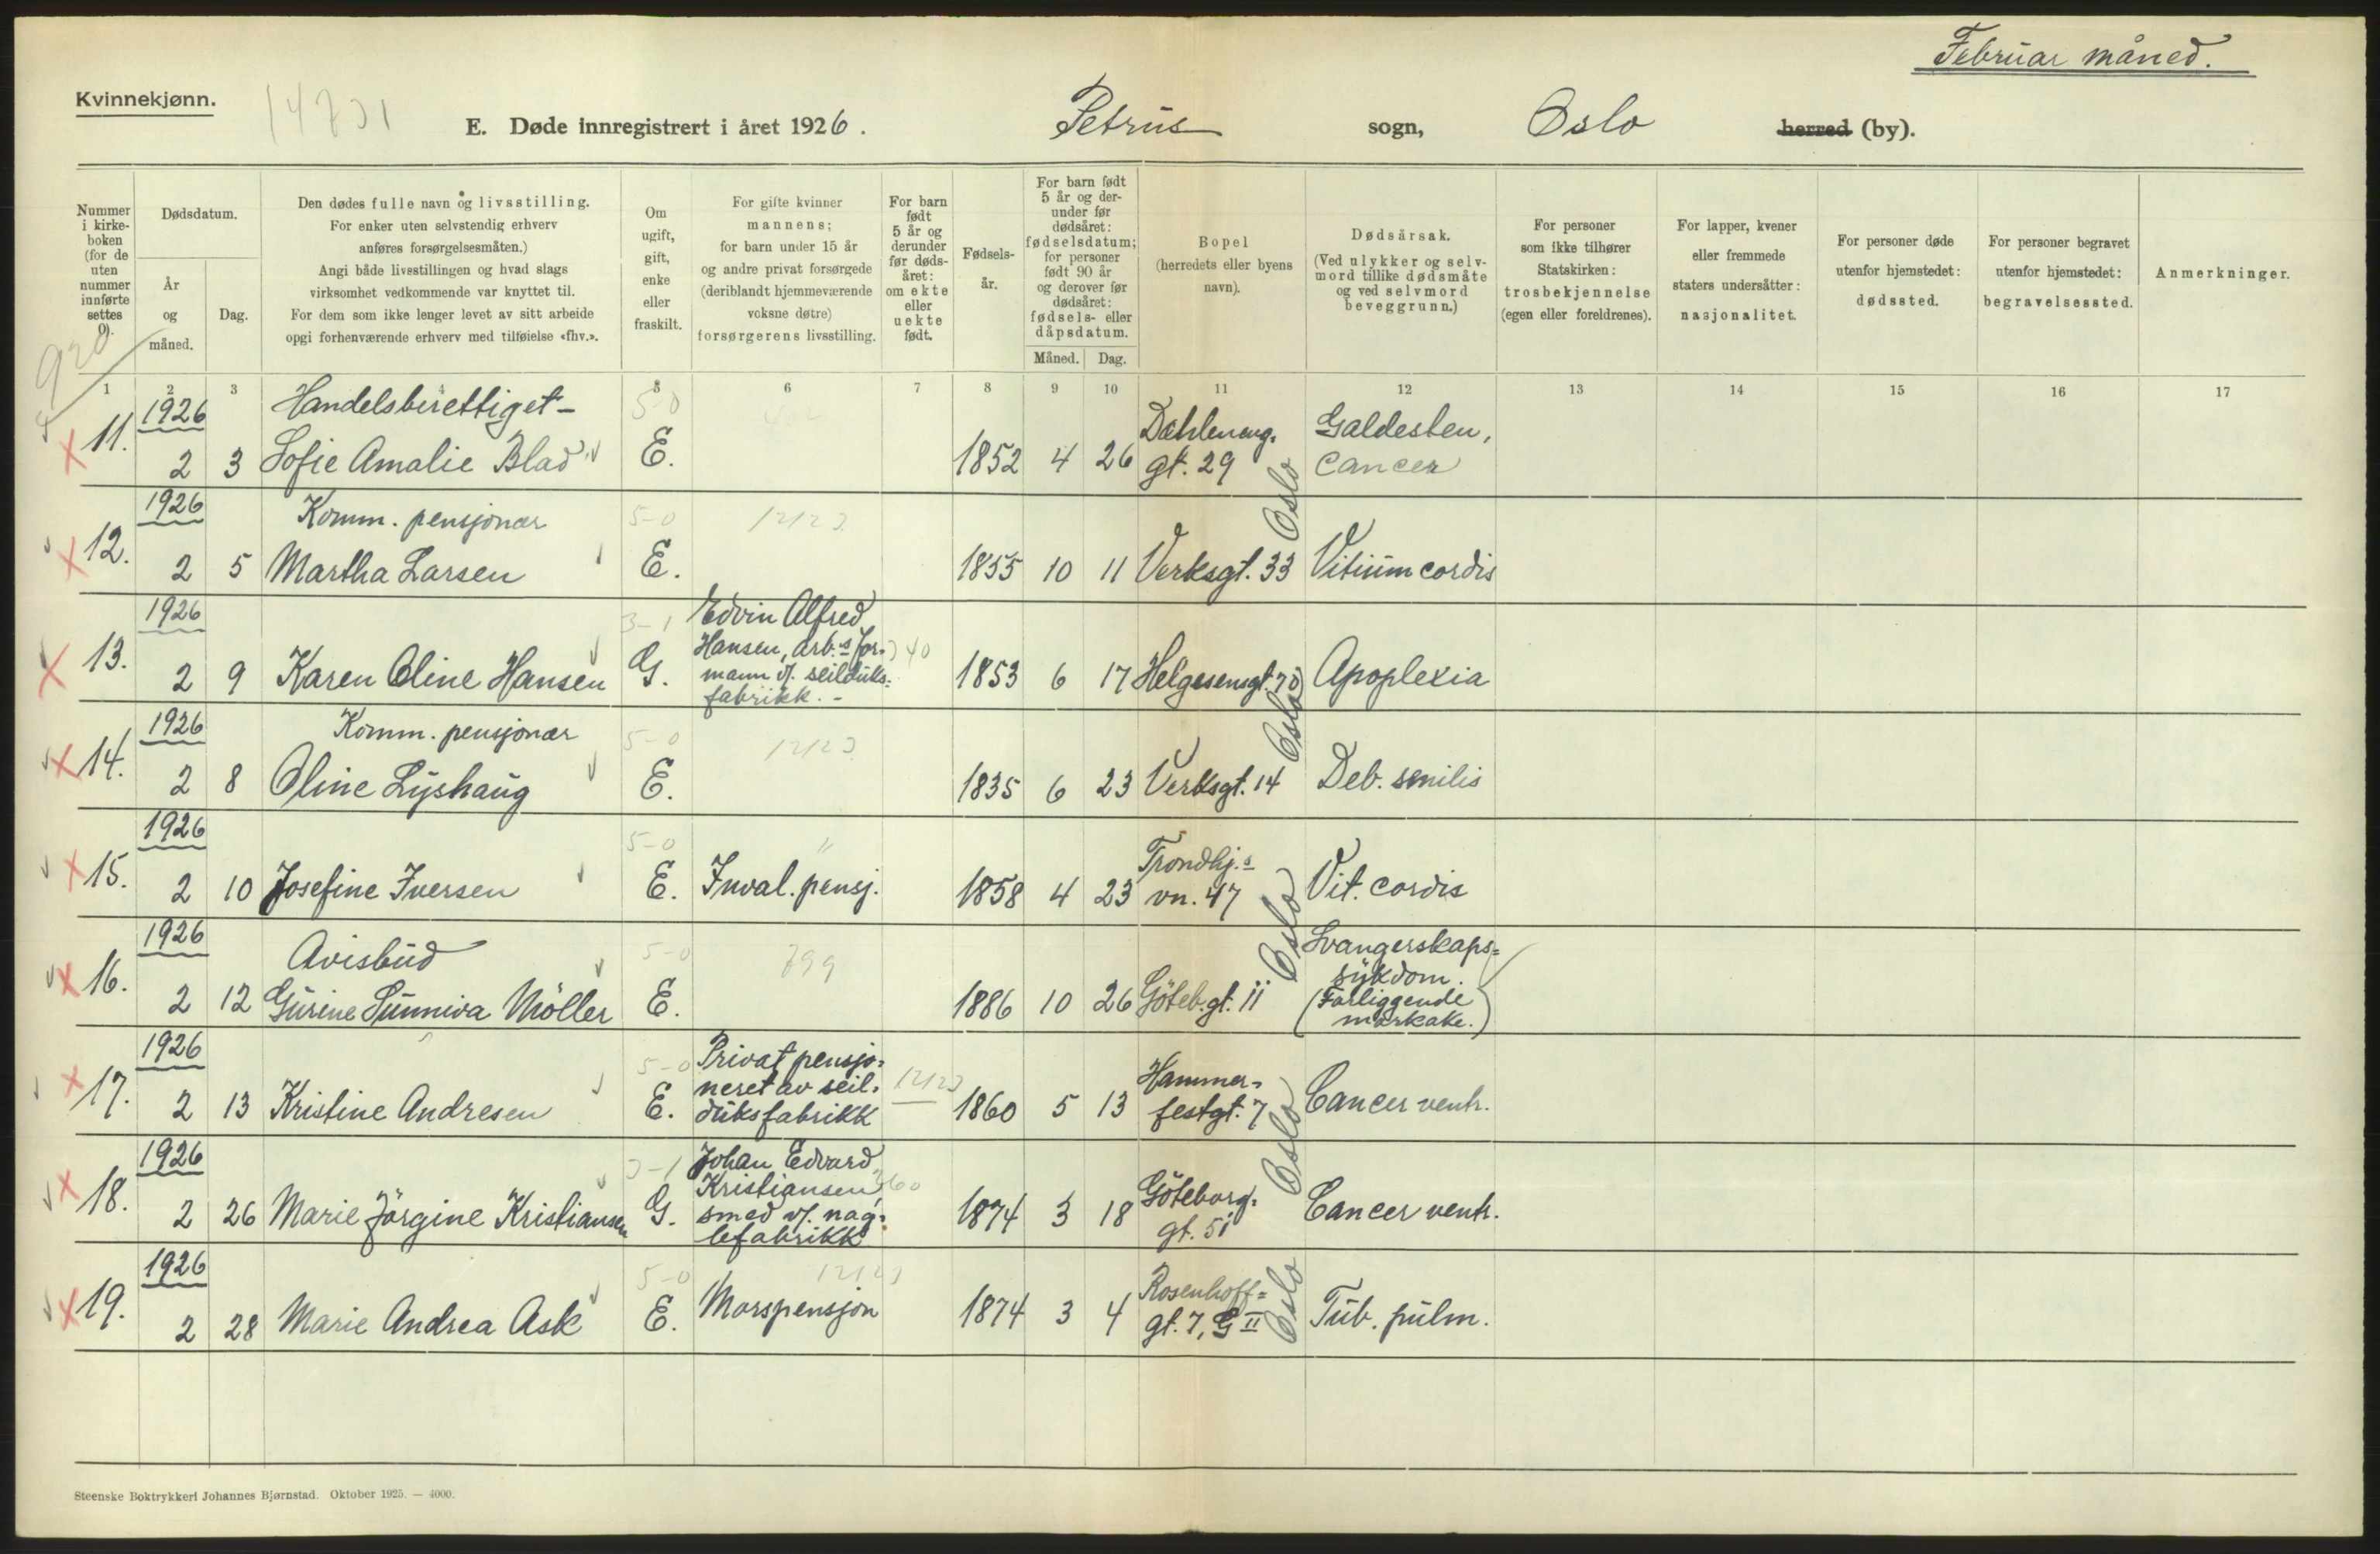 Februar måned.
Kvinnekjønn.
14731
E. Døde innregistrert i året 1926. Petrus sogn, Oslo herred (by).
Nummer i kirke-boken (for de uten nummer innførte settes 0).
Dødsdatum.
År og måned.
Dag.
Den dødes fulle navn og livsstilling.
For enker uten selvstendig erhverv
anføres forsørgelsesmåten.)
Angi både livsstillingen og hvad slags
virksomhet vedkommende var knyttet til.
For dem som ikke lenger levet av sitt arbeide
opgi forhenværende erhverv med tilføielse «fhv.».
Om ugift, gift, enke eller fraskilt.
For gifte kvinner
mannens;
for barn under 15 år
og andre privat forsørgede
(deriblandt hjemmeværende
voksne døtre)
forsørgerens livsstilling.
For barn født 5 år og derunder før døds-året: om ekte eller uekte født.
Fødsels-år.
For barn født 5 år og der-under før dødsåret: fødselsdatum; for personer født 90 år og derover før dødsåret: fødsels- eller dåpsdatum.
Måned. Dag.
Bopel (herredets eller byens navn).
Dødsårsak. (Ved ulykker og selv-mord tillike dødsmåte og ved selvmord beveggrunn.)
For personer som ikke tilhører Statskirken: trosbekjennelse (egen eller foreldrenes).
For lapper, kvener eller fremmede staters undersåtter: nasjonalitet.
For personer døde utenfor hjemstedet: dødssted.
For personer begravet utenfor hjemstedet: begravelsessted.
Anmerkninger.
1 2 3 4 5 6 7 8 9 10 11 12 13 14 15 16 17
1926 Handelsberettiget- 5-0
11. 2 3 Sofie Amalie Blad E. 1852 4 26 Dæleneng.
gt. 29 Oslo Galdesten,
Cancer
1926 Komm. pensjonær 5-0 12123
12. 2 5 Martha Larsen E. 1855 10 11 Verksgt. 33 Vitium cordis
1926 3-1 Edvin Alfred
Hansen, arb.s for- 40
13. 2 9 Karen Oline Hansen G. mann v/. seilduks-
fabrikk.- 1853 6 17 Helgesensgt. 70 Oslo Apoplexia
1926 Komm. pensjonær 5-0 12123
14. 2 8 Oline Lyshaug E. 1835 6 23 Verksgt. 14 Deb. senilis
1926 5-0 "
15. 2 10 Josefine Iversen E. Inval. pensj. 1858 4 23 Trondhj.s
vn. 47 Oslo Vit. cordis
1926 Avisbud 5-0 799
16. 2 12 Gurine Sunniva Möller E. 1886 10 26 Göteb.gt. 11 Svangerskaps=
sykdom.
(Forliggende
morkake.)
1926 5-0 Privat pensjo-
neret av seil- 12123
17. 2 13 Kristine Andresen E. duksfabrikk 1860 5 13 Hammer-
festgt. 7 Oslo Cancer ventr.
1926 3-1 Johan Edvard
Kristiansen, 360
18. 2 26 Marie Jörgine Kristiansen G. smed v/. nag-
lefabrikk 1874 3 18 Göteborg-
gt. 51 Cancer ventr.
1926 5-0 12123
19. 2 28 Marie Andrea Ask E. Morspensjon 1874 3 4 Rosenhoff=
gt. 7, G II Oslo Tub. pulm.
Steenske Boktrykkeri Johannes Bjørnstad. Oktober 1925. — 4000.